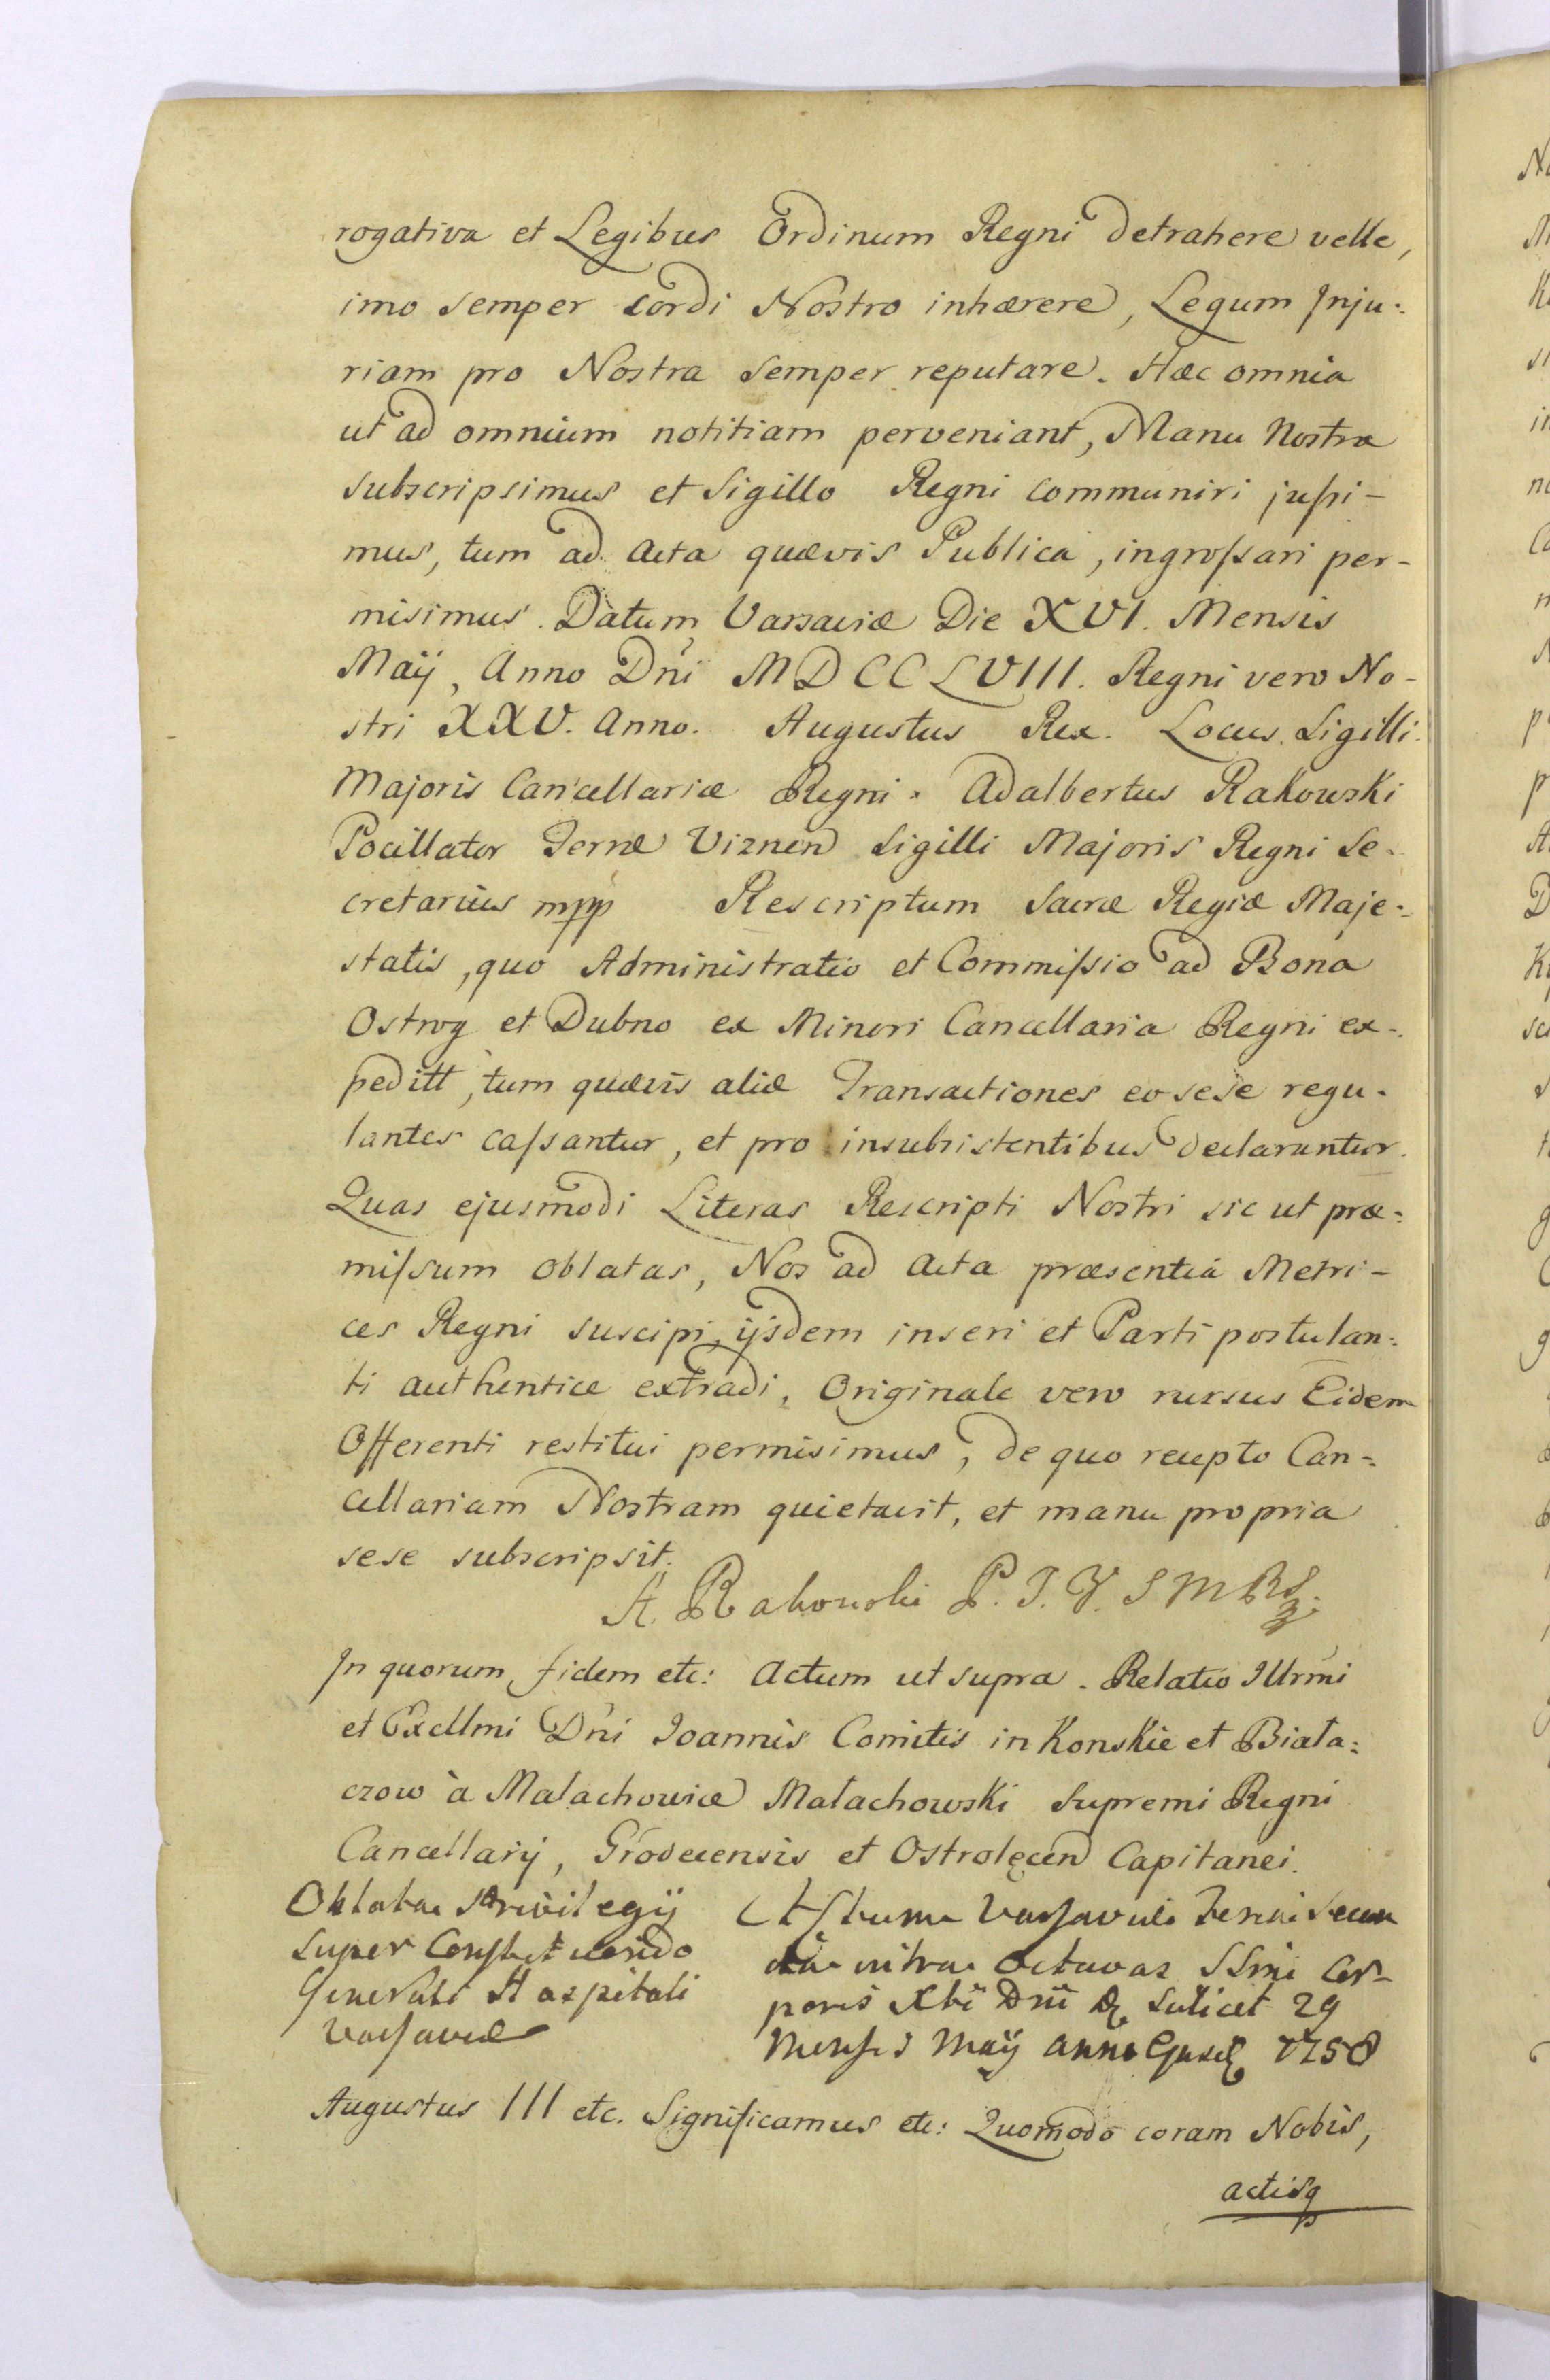 rogativa et Legibus Ordinum Regni detrahere velle,
imo semper cordi Nostro inhærere, Legum Inju:
riam pro Nostra semper reputare. Hæc omnia
ut ad omnium notitiam perveniant, Manu Nostra
subscripsimus et Sigillo Regni communiri jussi-
mus, tum ad Acta quævis Publica, ingrossari per-
misimus. Datum Varsaviæ Die XVI. Mensis
Maÿ, Anno Dni MDCCLVIII. Regni vero No-
stri XXV. Anno. Augustus Rex. Locus Sigilli.
Majoris Cancellariæ Regni. Adalbertus Rakowski
Pocillator Terræ Viznen Sigilli Majoris Regni Se-
cretarius mpp Rescriptum Sacræ Regiæ Maje:
statis, quo Administratio et Commissio ad Bona
Ostrog et Dubno ex Minori Cancellaria Regni ex-
peditt, tum quævis aliæ Transactiones eo sese regu-
lantes cassantur, et pro insubsistentibus declarantur.
Quas ejusmodi Literas Rescripti Nostri sic ut præ:
missum oblatas, Nos ad Acta præsentia Metri-
ces Regni suscipi, ijsdem inseri et Parti postulan:
ti authentice extradi, Originale vero rursus Eidem
Offerenti restitui permisimus, de quo recepto Can:
cellariam Nostram quietavit, et manu propria
sese subscripsit.
A. Rakowski P. T. V. S M R S
In quorum fidem etc: Actum ut supra. Relatio Illrmi
et Excllmi Dni Joannis Comitis in Konskie et Biała:
czow à Małachowice Małachowski Supremi Regni
Cancellarÿ, Grodecensis et Ostrolęcen Capitanei.
Oblata Privilegÿ
super Construendo
Generali Hospitali
Varsaviæ
Actum Varsaviæ Feria Secun
da intra Octavas SSmi Cor-
poris Xti Dni scilicet 29
Mensis Maÿ Anno 1758
Augustus III etc. Significamus etc: Quomodo coram Nobis,
actisq